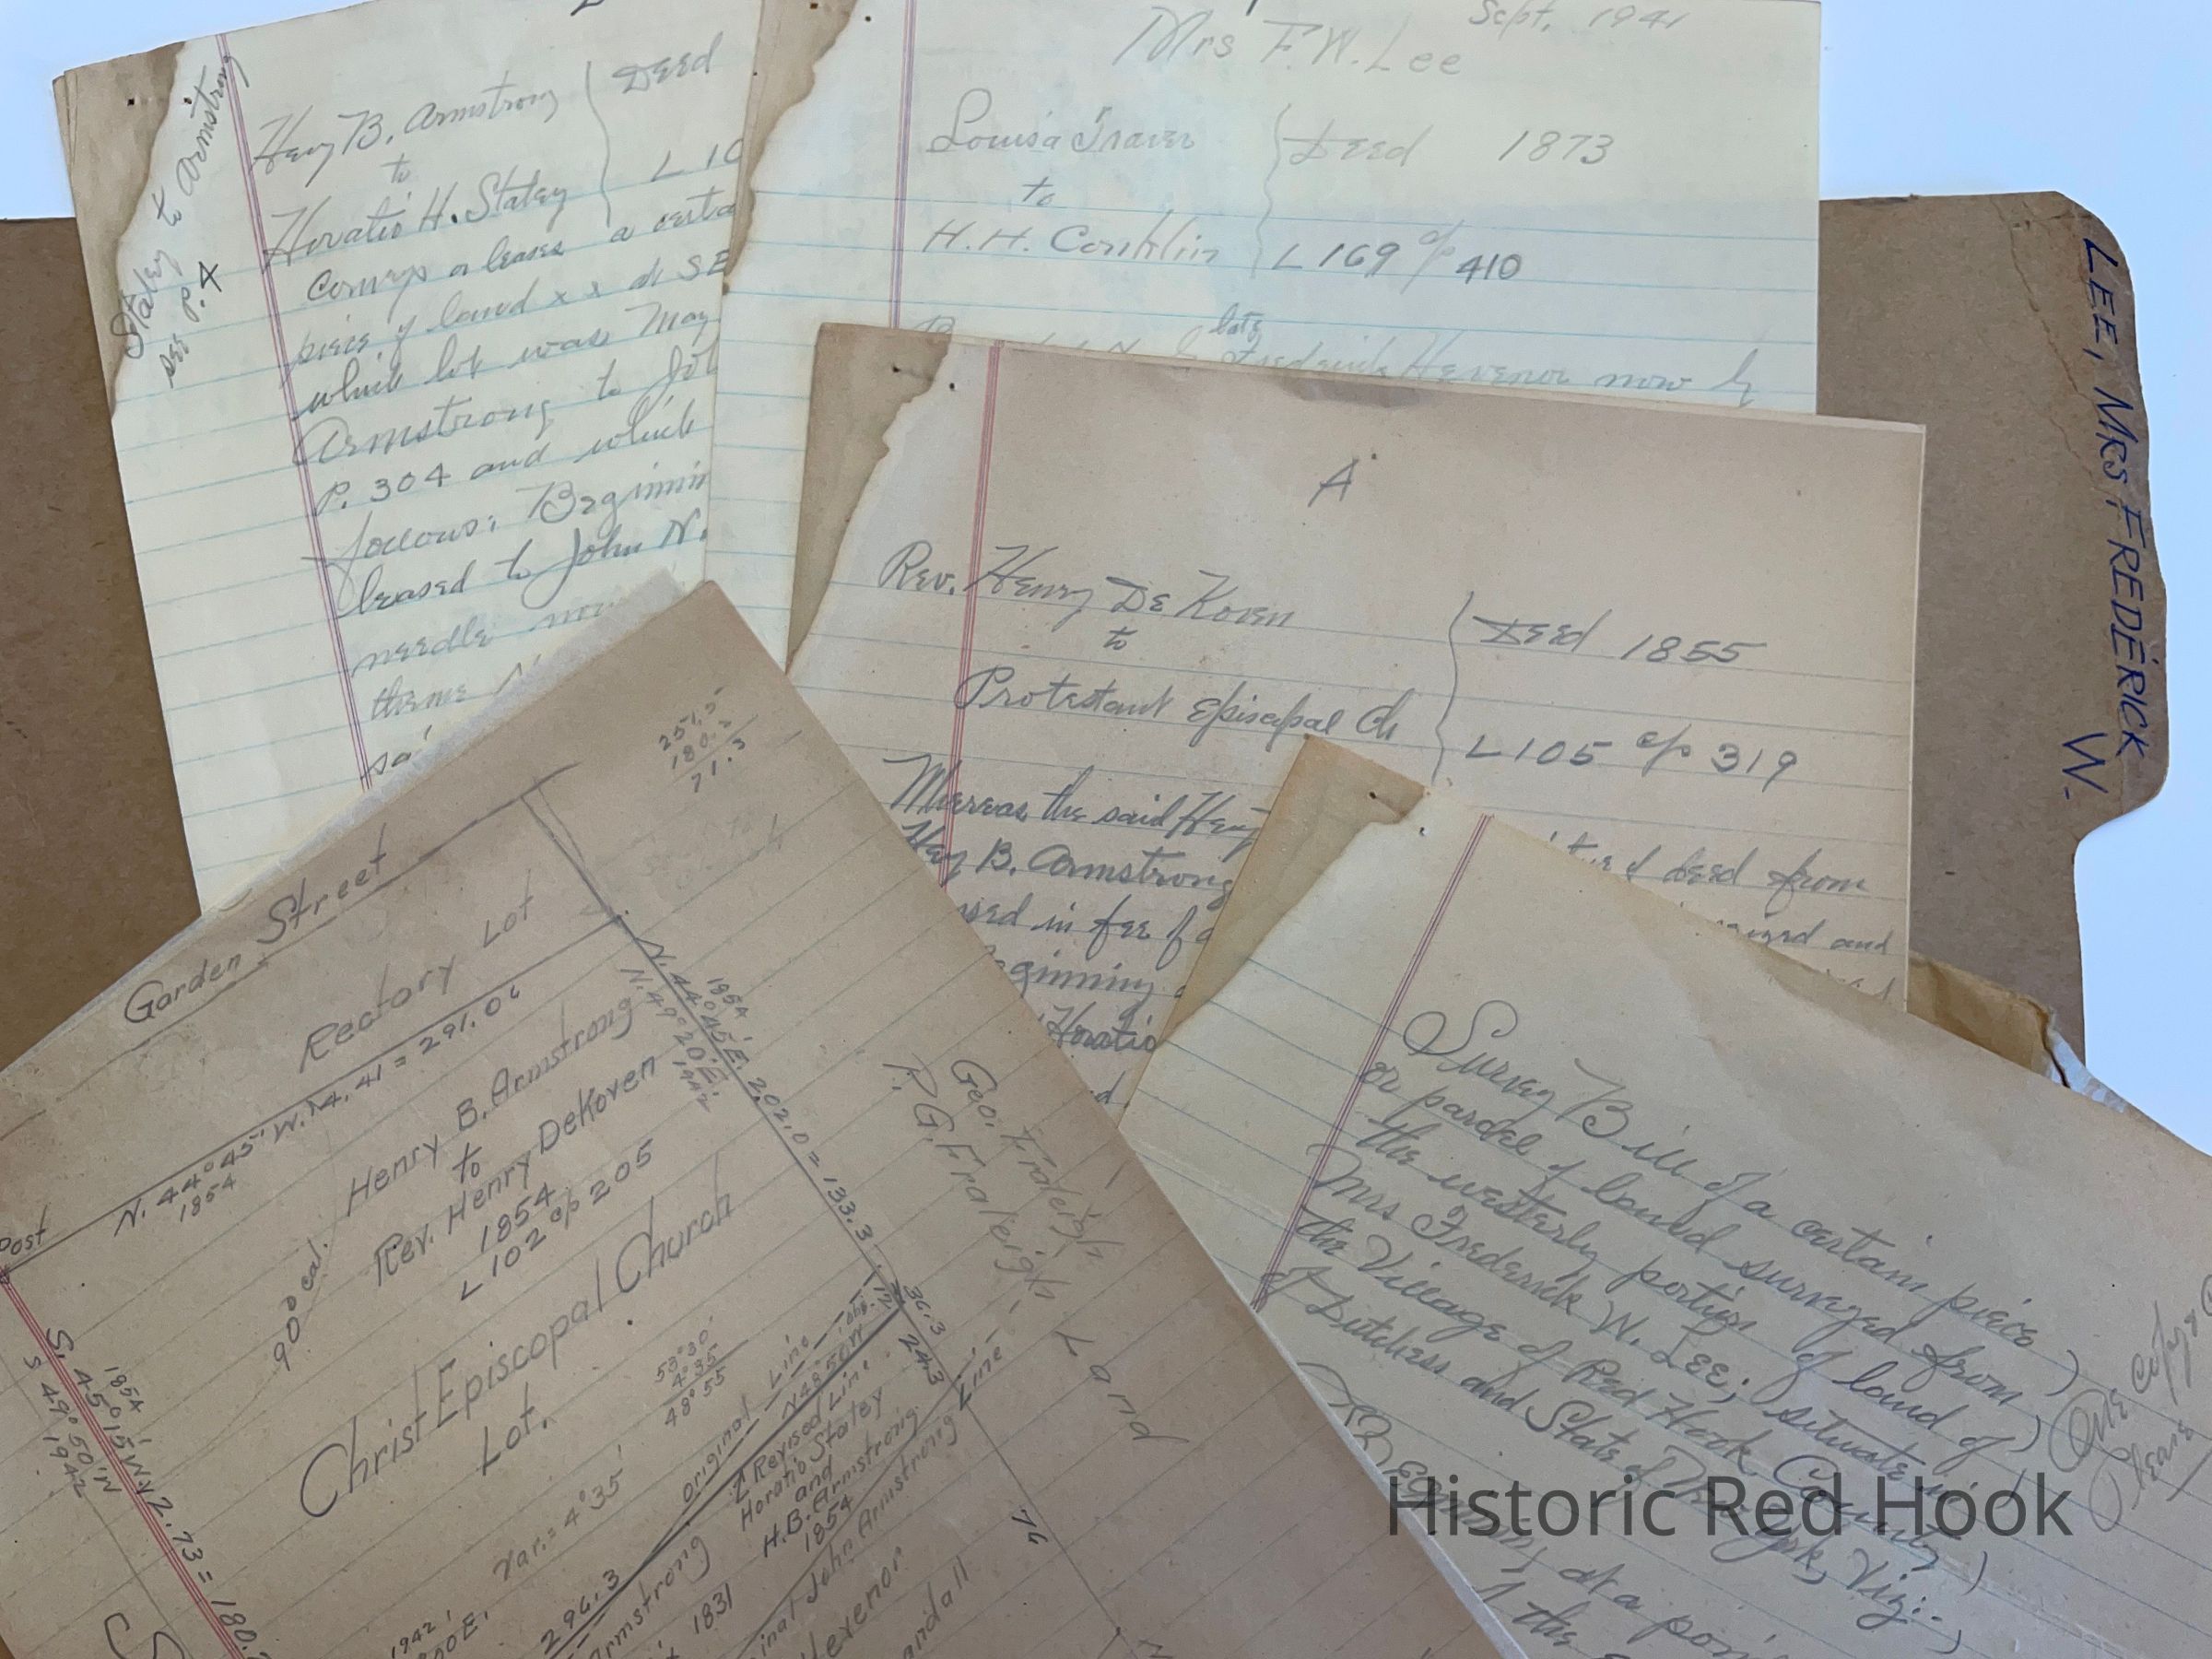 Staley to Armstrong
see P. 4
Henry B. Armstrong
to
Horatio H. Staley
Deed
L 10
Conveys or leases a certa
piece of land x x at SE
which lot was May
Armstrong to Joh
P. 304 and which
follows: Beginnin
leased to John N.
needle now
thence N
sa
Sept. 1941
Mrs F. W. Lee
Louisa Traver
to
H. H. Conklin
Deed 1873
L 169 of p 410
late
Frederick Hevenor now by
LEE, MRS. FREDERICK W.
A
Rev. Henry De Koven
to
Protestant Episcopal Ch
Deed 1855
L 105 of p 319
Whereas the said Henry
of deed from
Hey B. Armstrong
and
sed in fee of a
eginning
Horatio
ed
251.5
180.2
71.3
Garden Street
Rectory Lot
N. 44° 45' W. 4.41 = 291.06
1854
Post
Henry B. Armstrong
to
Rev. Henry DeKoven
1854
L 102 of p 205
90° cal.
Christ Episcopal Church
Lot.
1854
N. 44° 45' E. 2.02.0 = 133.3
N. 49° 20' E.
1942
Geo. Fraleigh
P. G. Fraleigh
Land
36.3
24.3
12
1854
S. 45° 15' W. 2.73 = 180.
S 49° 50' W
1942
53° 30'
4° 35
48° 55
Var. = 4° 35'
Original Line
N 48° 50 W
Revised Line
Horatio Staley
and
H. B. Armstrong
1854
inal John Armstrong Line
76
296.3
Armstrong
1831
Hevenor
andall
1942
00 E.
Survey Bill of a certain piece
or parcel of land surveyed from
the westerly portion of land of
Mrs Frederick W. Lee; situate in
the Village of Red Hook, County
of Dutchess and State of New York, Viz:-
Beginning at a poin
of the
One Copy
Please
Historic Red Hook